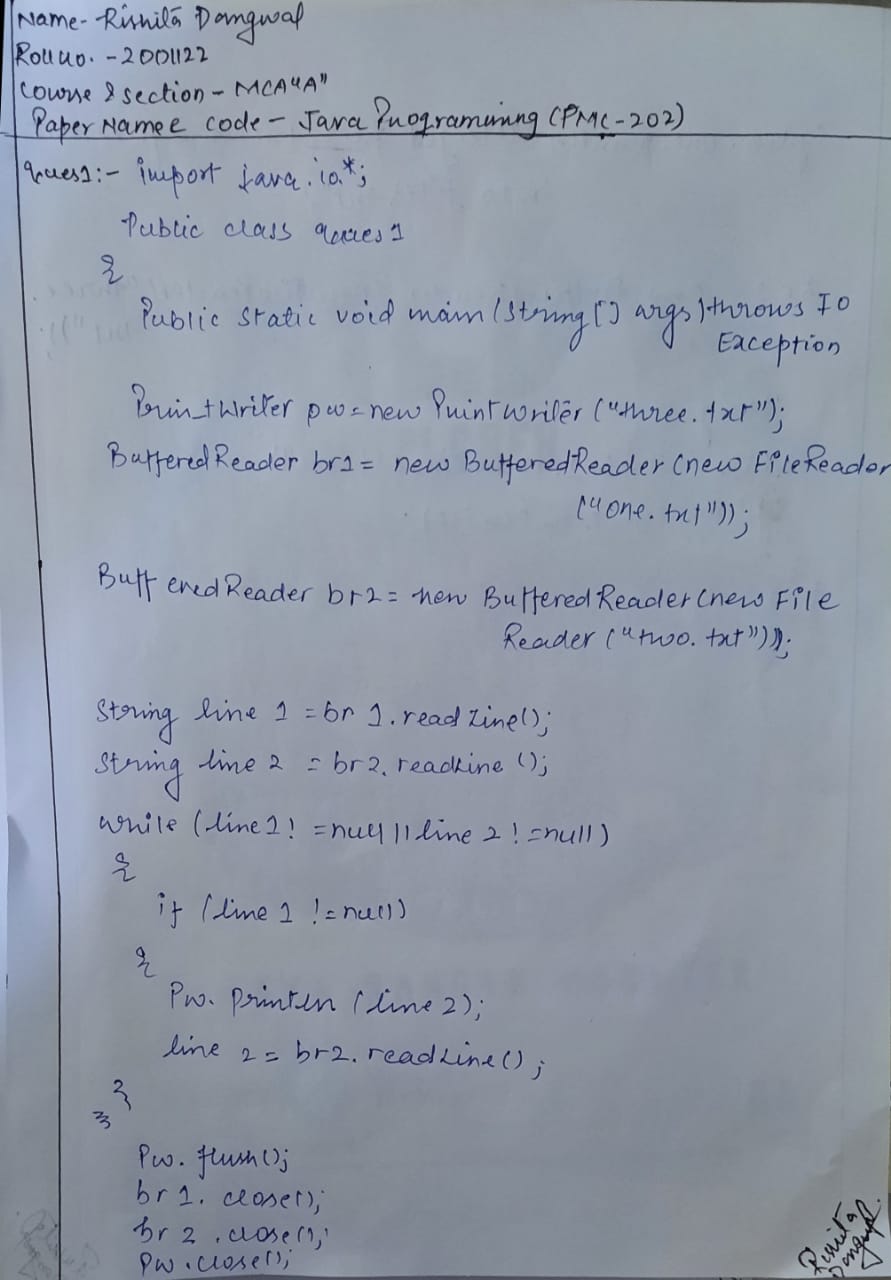 Name- Rishita Dangwal
Rollno. - 2001122
Course & section - MCA "A"
Paper Name & code - Java Programming (PMC-202)
Ques1:- import java.io.*;
Public class ques1
{
Public static void main (String [] args) throws IO
Exception
PrintWriter pw = new PrintWriter ("three.txt");
BufferedReader br1 = new BufferedReader (new FileReader
("one.txt"));
BufferedReader br2 = new BufferedReader (new File
Reader ("two.txt"));
String line 1 = br 1. readLine();
String line 2 = br2. readLine ();
while (line1! = null || line 2 ! = null)
{
if (line 1 != null)
{
Pw. println (line 2);
line 2 = br2. readLine() ;
}
}
Pw. flush();
br 1. close();
br 2 . close();
Pw . close();
Rishita
Dangwal